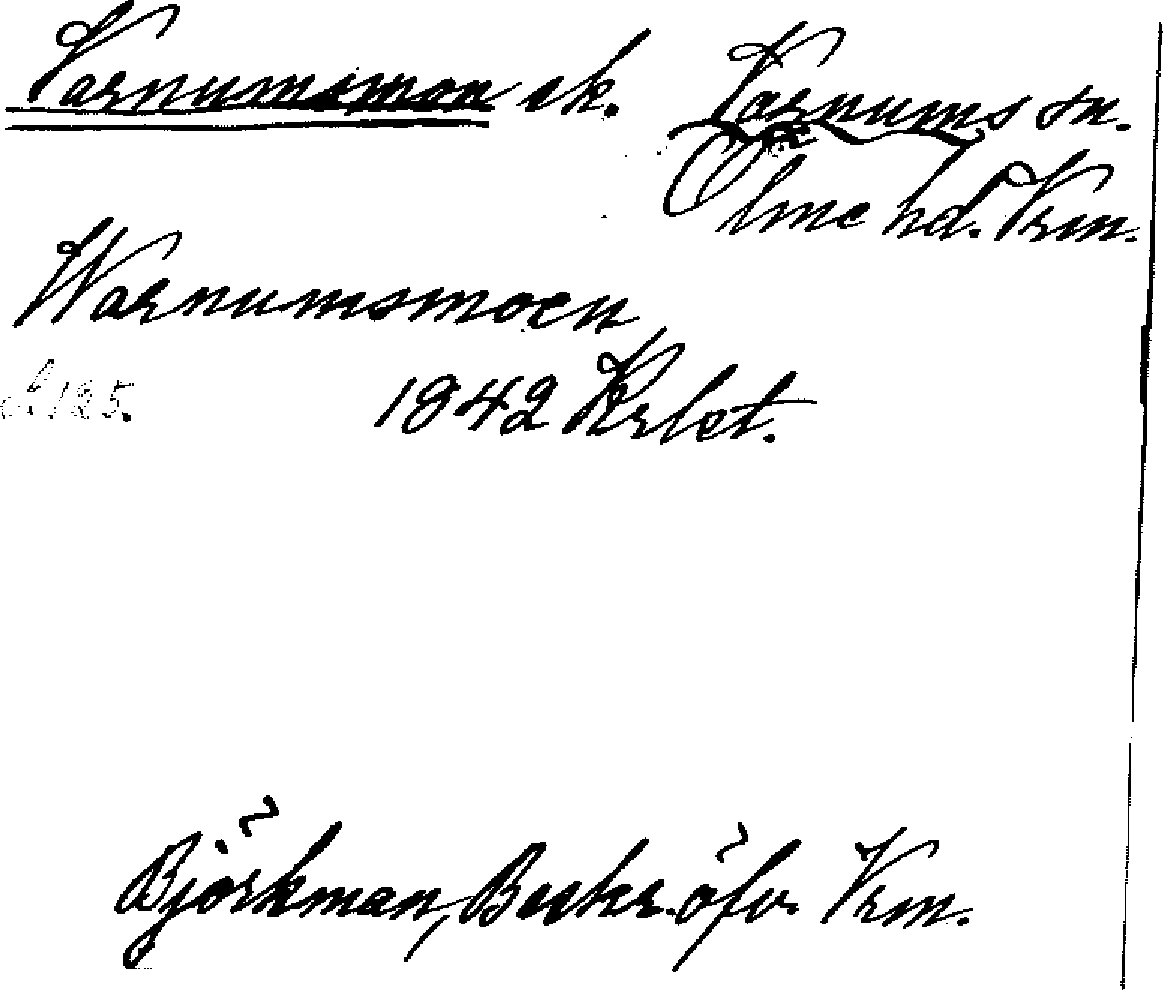 Varnumsmon sk. Varnums sn.
Ölme hd. Vrm.
Warnumsmoen
s. 125. 1842 Krlst.
Björkman, Beskr. öfv. Vrm.